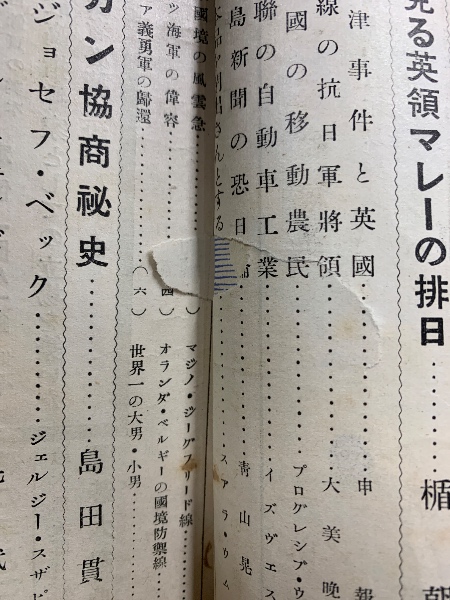 見る英領マレーの排日……楯 朝
津事件と英國……申 報
線の抗日軍將領……大 美 晩
國の移動農民……プログレシブ・ウ
聯の自動車工業……イズヴェス
島新聞の恐日……靑山晃
出さんとする……スアラ・ウム
國境の風雲急……
ッ海軍の偉容……(四)
ア義勇軍の歸還……(六)
マジノ・ジーグフリード線……
オランダ・ベルギーの國境防禦線……
世界一の大男・小男……
カン協商祕史……島田貫
ジョセフ・ベック……ジェルジー・スザピ